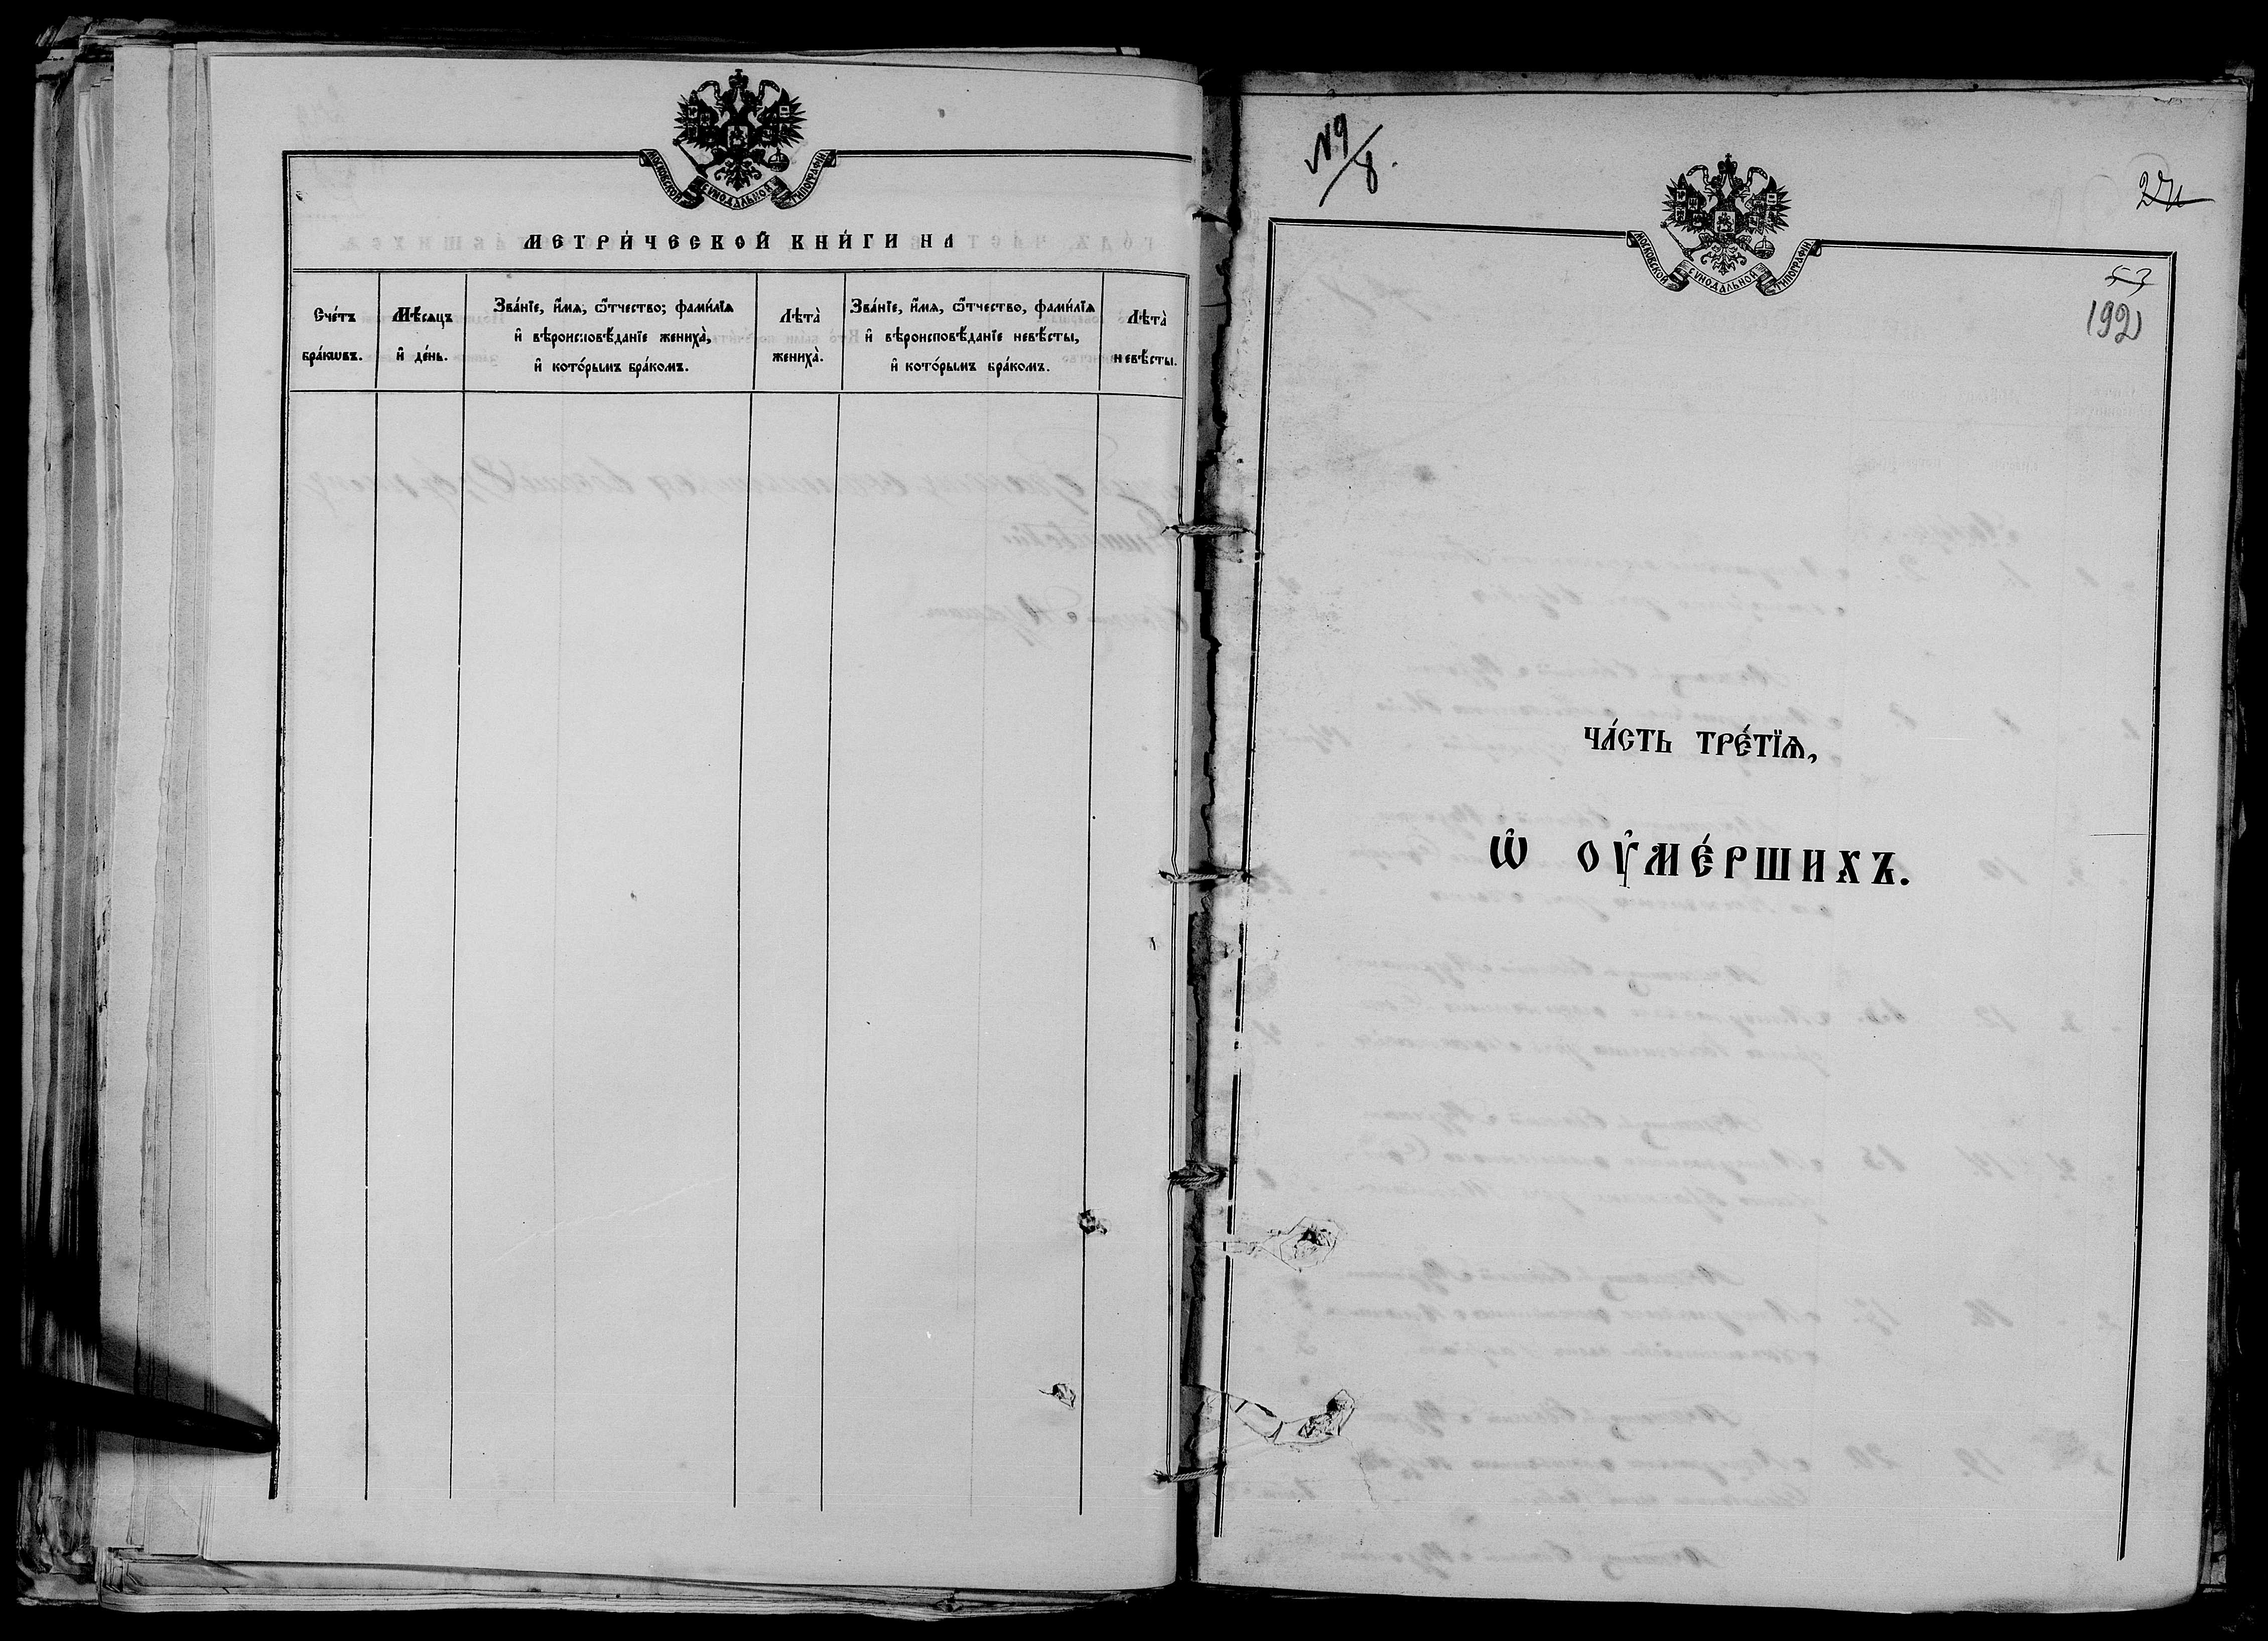 МОСКОВСКОЙ СѴНОДАЛЬНОЙ ТИПОГРАФІИ
МЕТРИ́ЧЕСКОЙ КНИ́ГИ НА
Сче́тъ бра́кѡвъ.
Мѣ́сяцъ и҆ де́нь.
Зва́нїе, и҆́мѧ, ѻ҆́тчество, фами́лїѧ
и҆ вѣроисповѣ́данїе жениха̀,
и҆ кото́рымъ бра́комъ.
Лѣта̀ жениха̀.
Зва́нїе, и҆́мѧ, ѻ҆́тчество, фами́лїѧ
и҆ вѣроисповѣ́данїе невѣ́сты,
и҆ кото́рымъ бра́комъ.
Лѣта̀ невѣ́сты.
№9/8.
МОСКОВСКОЙ СѴНОДАЛЬНОЙ ТИПОГРАФІИ
53
192
ЧА́СТЬ ТРЕ́ТЇѦ,
Ѡ҆ ОУ҆МЕ́РШИХЪ.